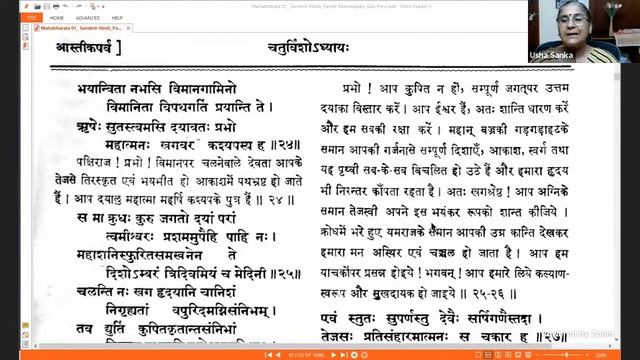 Mahabharata 01_ Sanskrit-Hindi_Pandit Ramnarayan_Gita Press.pdf - Nitro Reader 5
FILE HOME
Mahabharata 01_ Sanskrit-Hindi_Pa...
Usha Sanka
आस्तीकपर्व ]
चतुर्विंशोऽध्यायः
भयान्विता नभसि विमानगामिनो
विमानिता विपथगतिं प्रयान्ति ते ।
ऋषेः सुतस्त्वमसि दयावतः प्रभो
महात्मनः खगवर कश्यपस्य ह ॥ २४ ॥
पक्षिराज ! प्रभो ! विमानपर चलनेवाले देवता आपके
तेजसे तिरस्कृत एवं भयभीत हो आकाशमें पथभ्रष्ट हो जाते
हैं । आप दयालु महात्मा महर्षि कश्यपके पुत्र हैं ॥ २४ ॥
स मा क्रुधः कुरु जगतो दयां परां
त्वमीश्वरः प्रशममुपैहि पाहि नः ।
महाशनिस्फुरितसमस्वनेन ते
दिशोऽम्बरं त्रिदिवमियं च मेदिनी ॥ २५ ॥
चलन्ति नः खग हृदयानि चानिशं
निगृह्यतां वपुरिदमग्निसंनिभम् ।
तव द्युतिं कुपितकृतान्तसंनिभां
प्रभो ! आप कुपित न हों, सम्पूर्ण जगत्पर उत्तम
दयाका विस्तार करें । आप ईश्वर हैं, अतः शान्ति धारण करें
और हम सबकी रक्षा करें । महान् वज्रकी गड़गड़ाहटके
समान आपकी गर्जनासे सम्पूर्ण दिशाएँ, आकाश, स्वर्ग तथा
यह पृथ्वी सब-के-सब विचलित हो उठे हैं और हमारा हृदय
भी निरन्तर काँपता रहता है । अतः खगश्रेष्ठ ! आप अग्निके
समान तेजस्वी अपने इस भयंकर रूपको शान्त कीजिये ।
क्रोधमें भरे हुए यमराजके समान आपकी उग्र कान्ति देखकर
हमारा मन अस्थिर एवं चञ्चल हो जाता है । आप हम
याचकोंपर प्रसन्न होइये ! भगवन् ! आप हमारे लिये कल्याण-
स्वरूप और सुखदायक हो जाइये ॥ २५-२६ ॥
एवं स्तुतः सुपर्णस्तु देवैः सर्षिगणैस्तदा ।
तेजसः प्रतिसंहारमात्मनः स चकार ह ॥ २७ ॥
Powered by Zoom